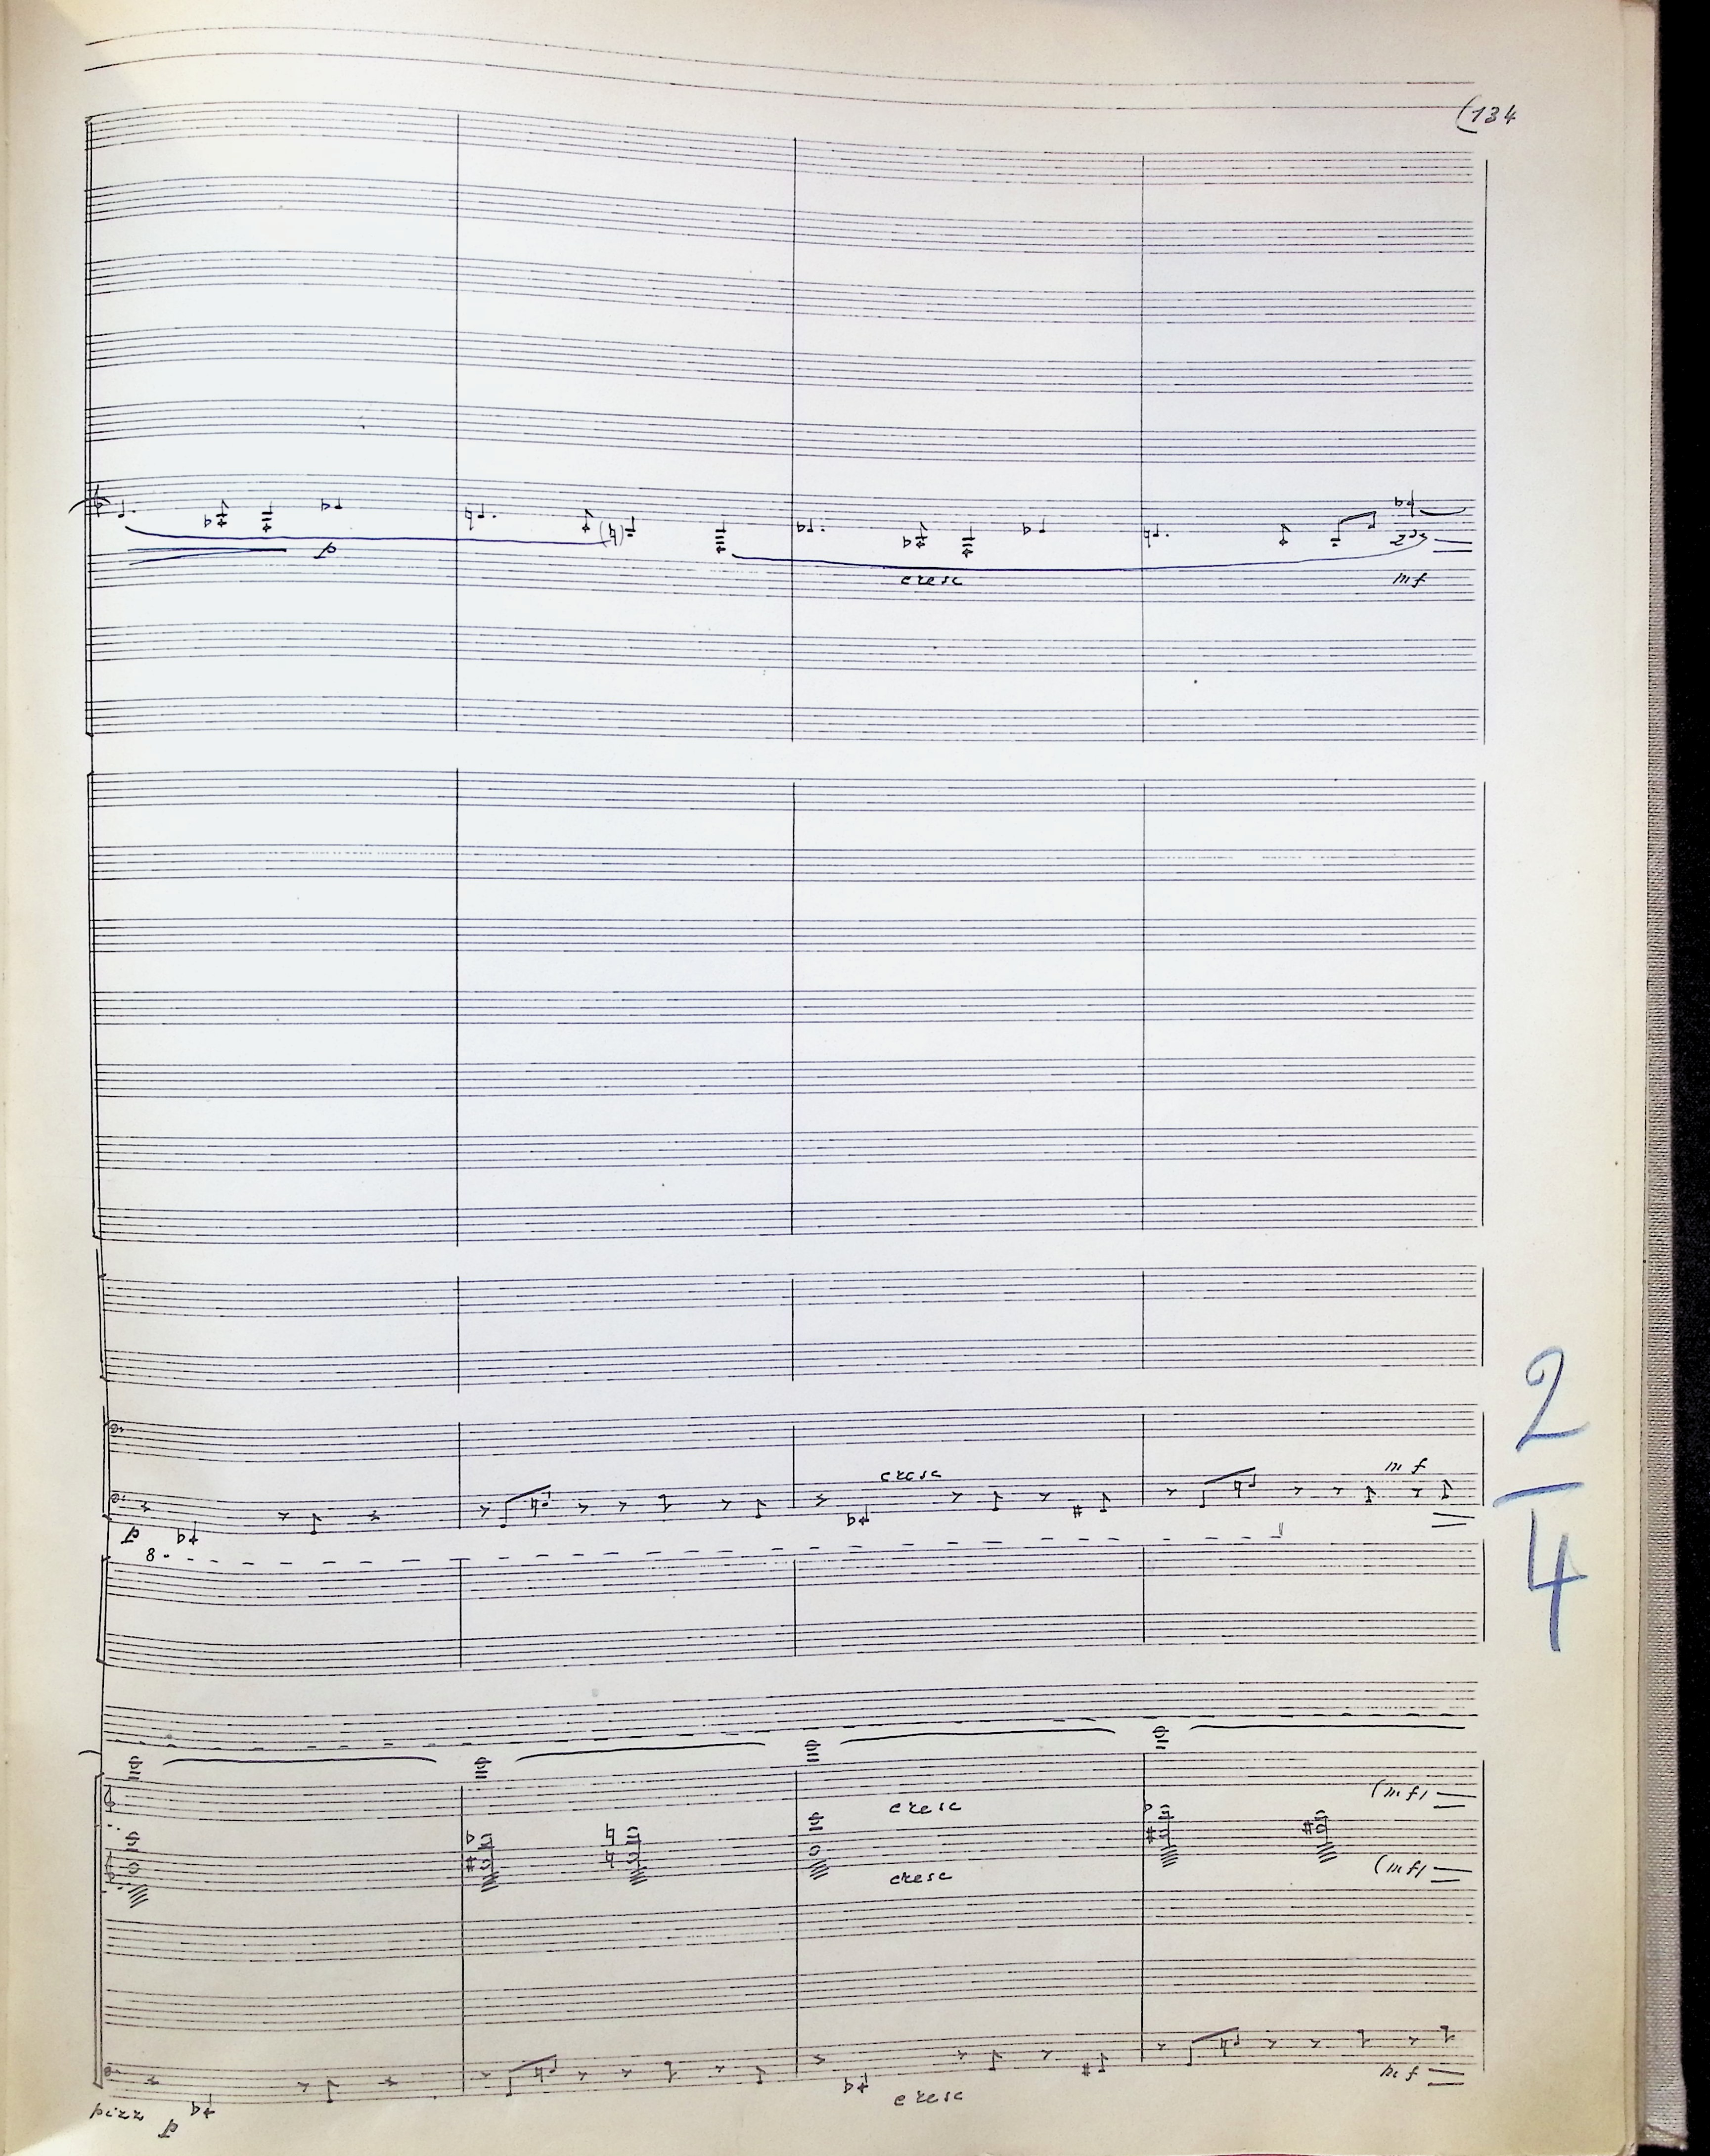 (134
p
cresc
mf
cresc
mf
p
8
2
4
cresc
(mf)
cresc
(mf)
mf
pizz p
cresc